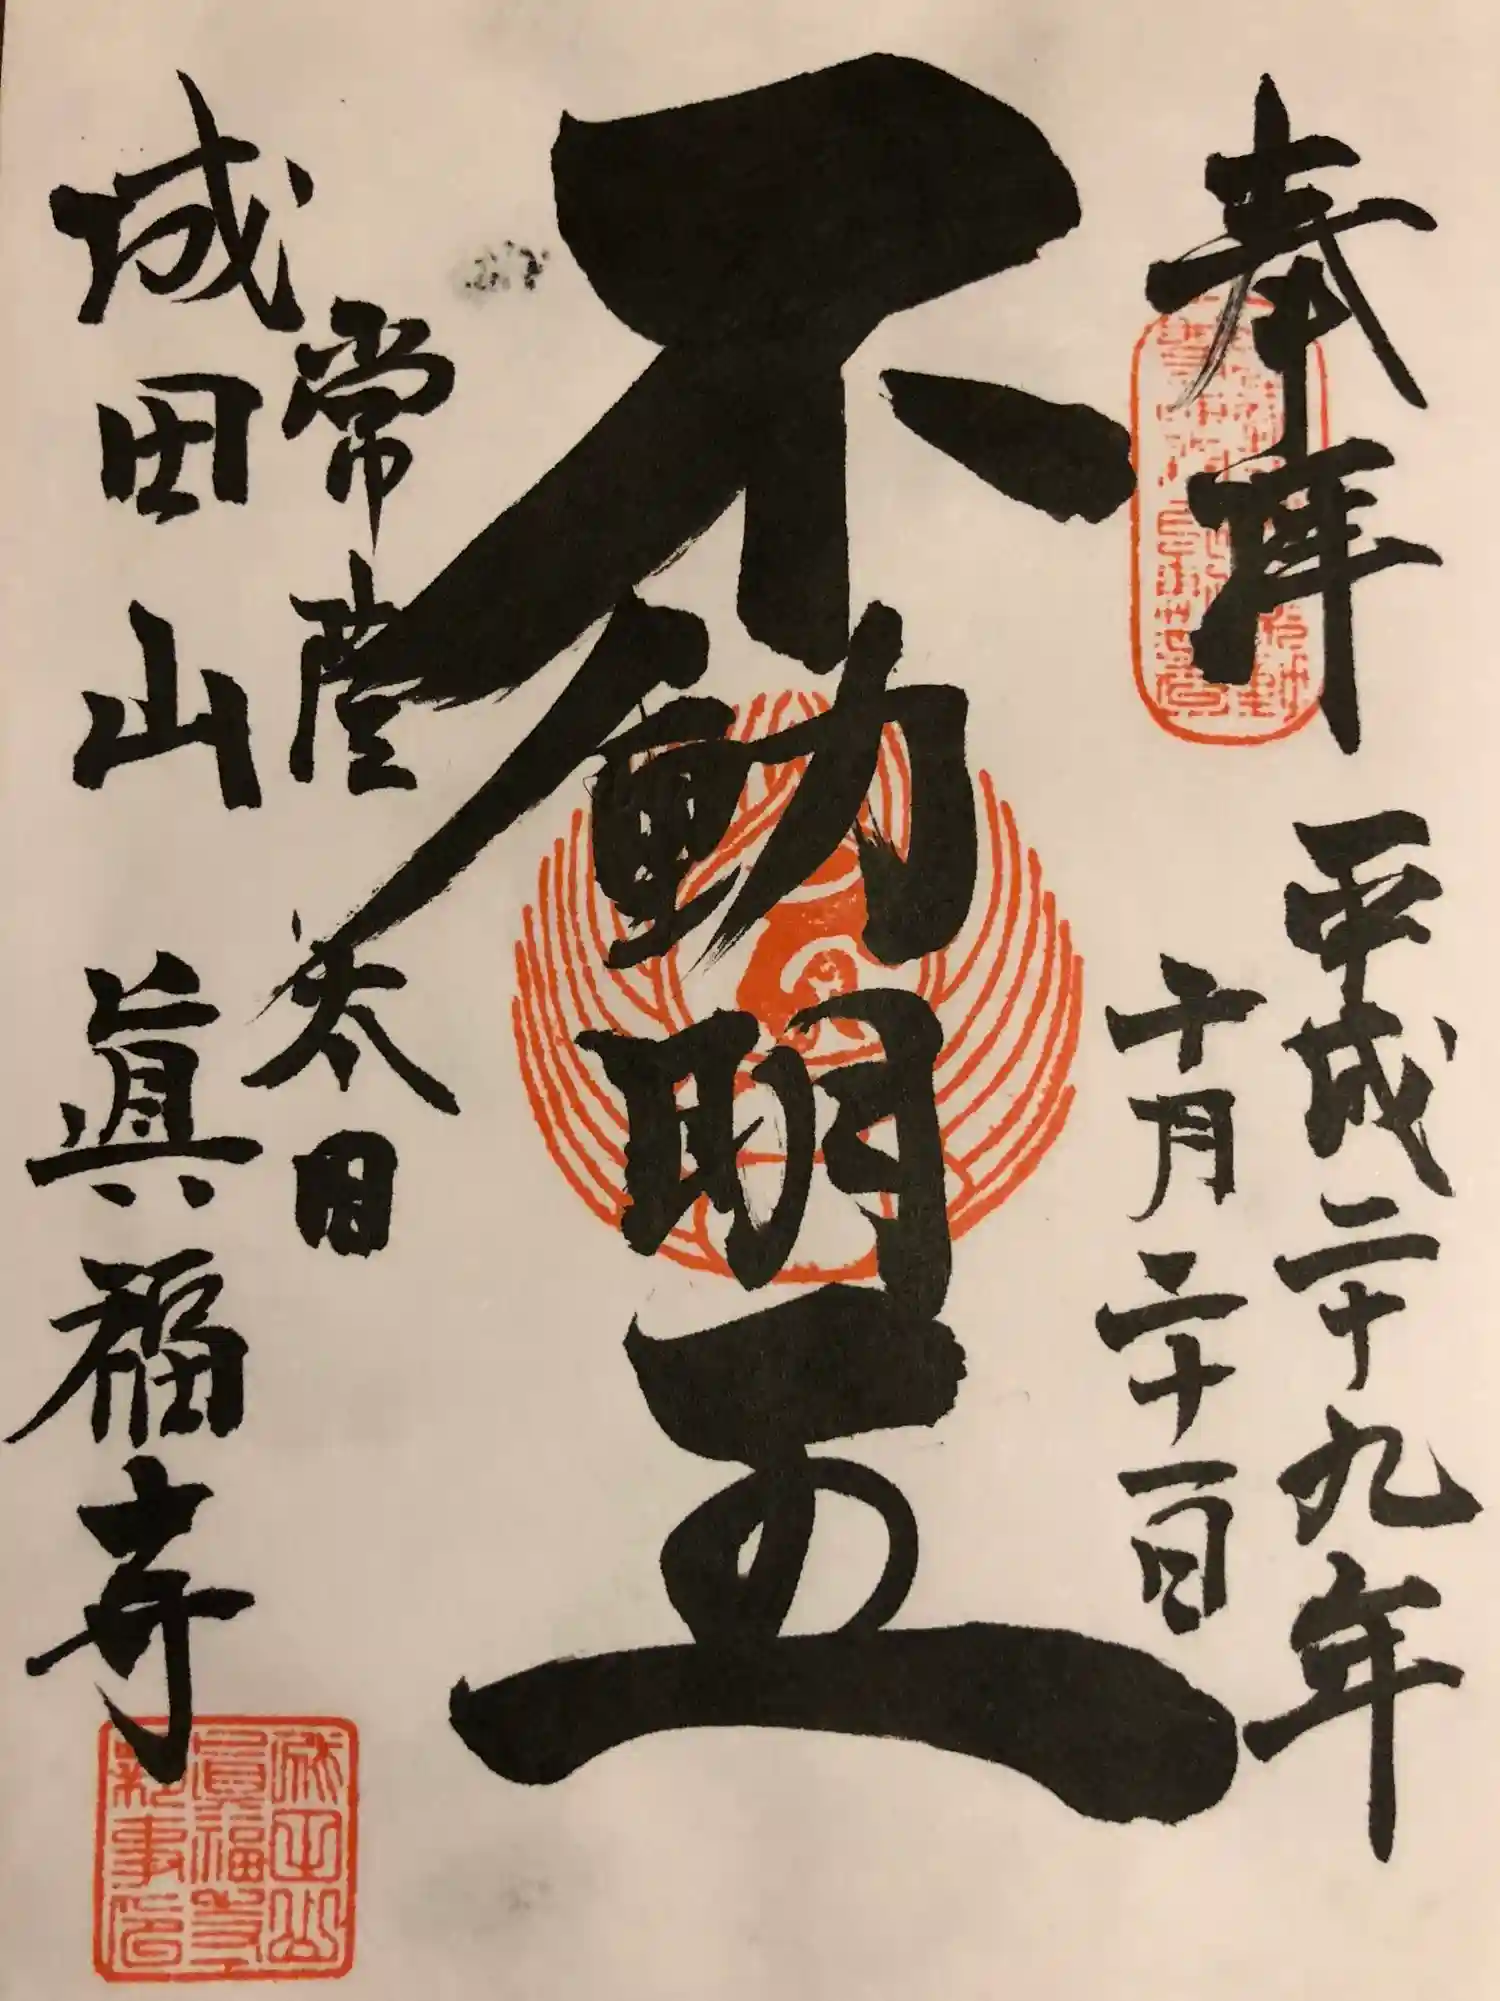 奉拝
平成二十九年
十月二十一日
不動明王
常陸太田
成田山 眞福寺
成田山
眞福寺
執事印